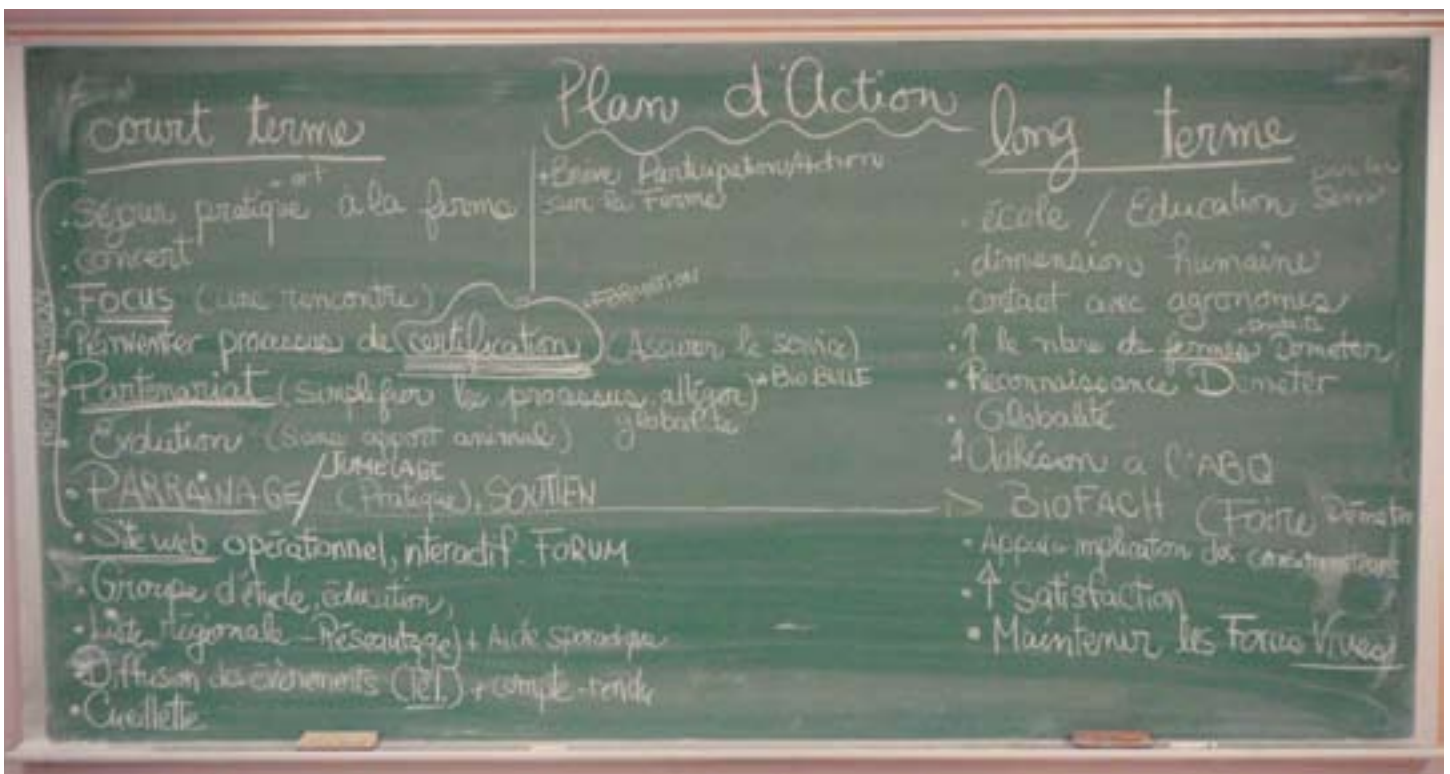 Plan d'Action
court terme
- art
• Séjour pratique à la ferme
• concert
• FOCUS (une rencontre)
Réinventer processus de certification (Assurer le service)
• Partenariat (simplifier le processus, alléger) * BIO BULLE
globalité
• Évolution (sans apport animal)
JUMELAGE
• PARRAINAGE / (Pratique), SOUTIEN
• Site web opérationnel, interactif - FORUM
• Groupe d'étude, éducation,
• Liste régionale - Réseautage) + Aide sporadique
• Diffusion des évènements (Tél.) + compte-rendu
• Cueillette
+ Brève Participation/Action
sur la Ferme
long terme
• école / Éducation
• dimension humaine
• contact avec agronomes
• ↑ le nbre de fermes Demeter
• Reconnaissance Demeter
• Globalité
↑ Adhésion à l'ABQ
BIOFACH (Foire Demeter
• Appuis implication des consommateurs
• ↑ Satisfaction
• Maintenir les Forces Vives